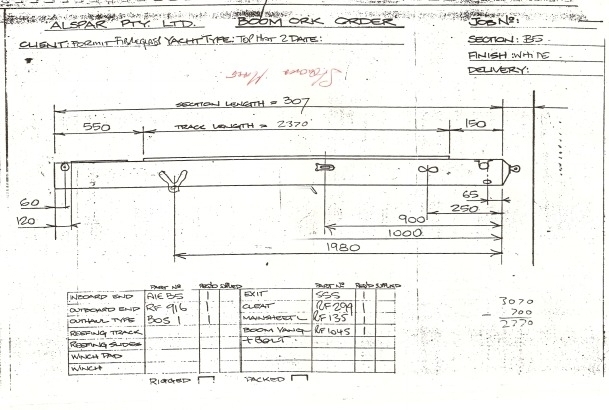 ALSPAR PTY. LTD. BOOM ORK ORDER JOB Nº:
CLIENT: Permit Fibreglass YACHT TYPE: Top Hat 2 DATE: SECTION: B5
FINISH: WHITE
DELIVERY:
SECTION LENGTH = 307
550 TRACK LENGTH = 2370 150
60 65
120 250
900
1000
1980
PART Nº REQ'D SUPPLIED PART Nº REQ'D SUPPLIED
INBOARD END A1E B5 1 EXIT SSS 1
OUTBOARD END RF 916 1 CLEAT RF 299 1
OUTHAUL TYPE BOS 1 1 MAINSHEET L RF 135 1
REEFING TRACK BOOM VANG RF 1045 1
REEFING SLIDES + BOLT
WINCH PAD
WINCH
RIGGED PACKED
3070
- 700
2370